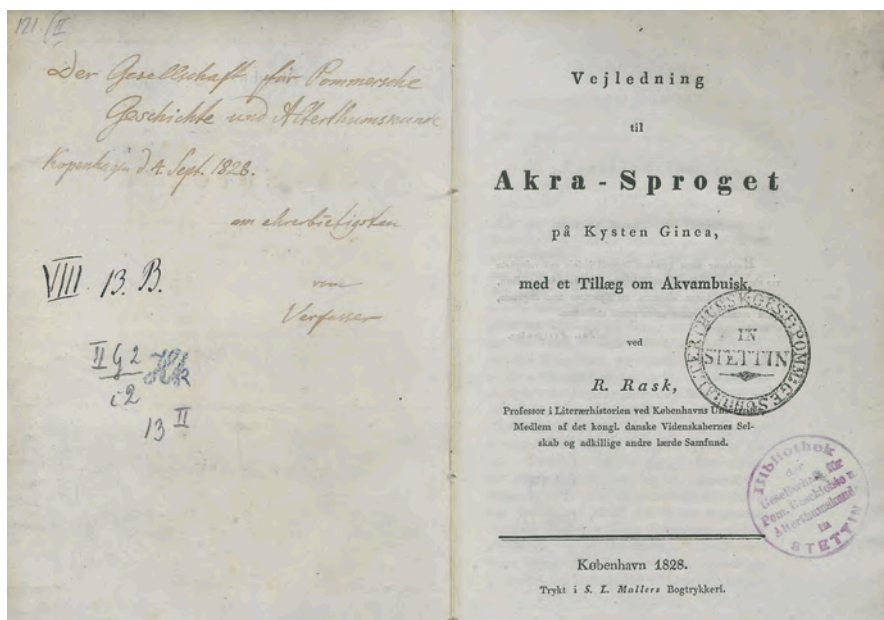 121./II
Der Gesellschaft für Pommersche
Geschichte und Alterthumskunde
Kopenhagen d. 4. Sept. 1828.
am ehrerbietigsten
vom
Verfasser
VIII. 13. B.
II G 2
i 2
Hk
13 II
Vejledning
til
Akra-Sproget
på Kysten Ginea,
med et Tillæg om Akvambuisk,
ved
R. Rask,
Professor i Literærhistorien ved Københavns
Medlem af det kongl. danske Videnskabernes Sel-
skab og adkillige andre lærde Samfund.
IN
STETTIN
Bibliothek
der
Gesellschaft für
Pom. Geschichte u.
Alterthumskunde
in
STETTIN
København 1828.
Trykt i S. L. Møllers Bogtrykkeri.